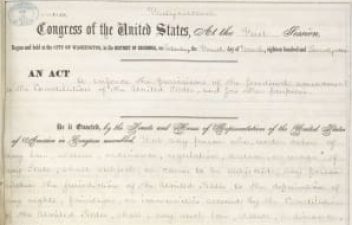 Forty-second
Congress of the United States, At the First Session,
Begun and held at the CITY OF WASHINGTON, in the DISTRICT OF COLUMBIA, on the day of March, eighteen hundred and Seventy-one
AN ACT To enforce the provisions of the fourteenth amendment
to the Constitution of the United States, and for other purposes.
Be it Enacted, by the Senate and House of Representatives of the United States
of America in Congress assembled, That any person who under color of
any law, statute, ordinance, regulation, custom, or usage of
any State, shall subject, or cause to be subjected, any person
within the jurisdiction of the United States to the deprivation of
any rights, privileges, or immunities secured by the Constitution
of the United States, shall, any such law, statute, ordinance,